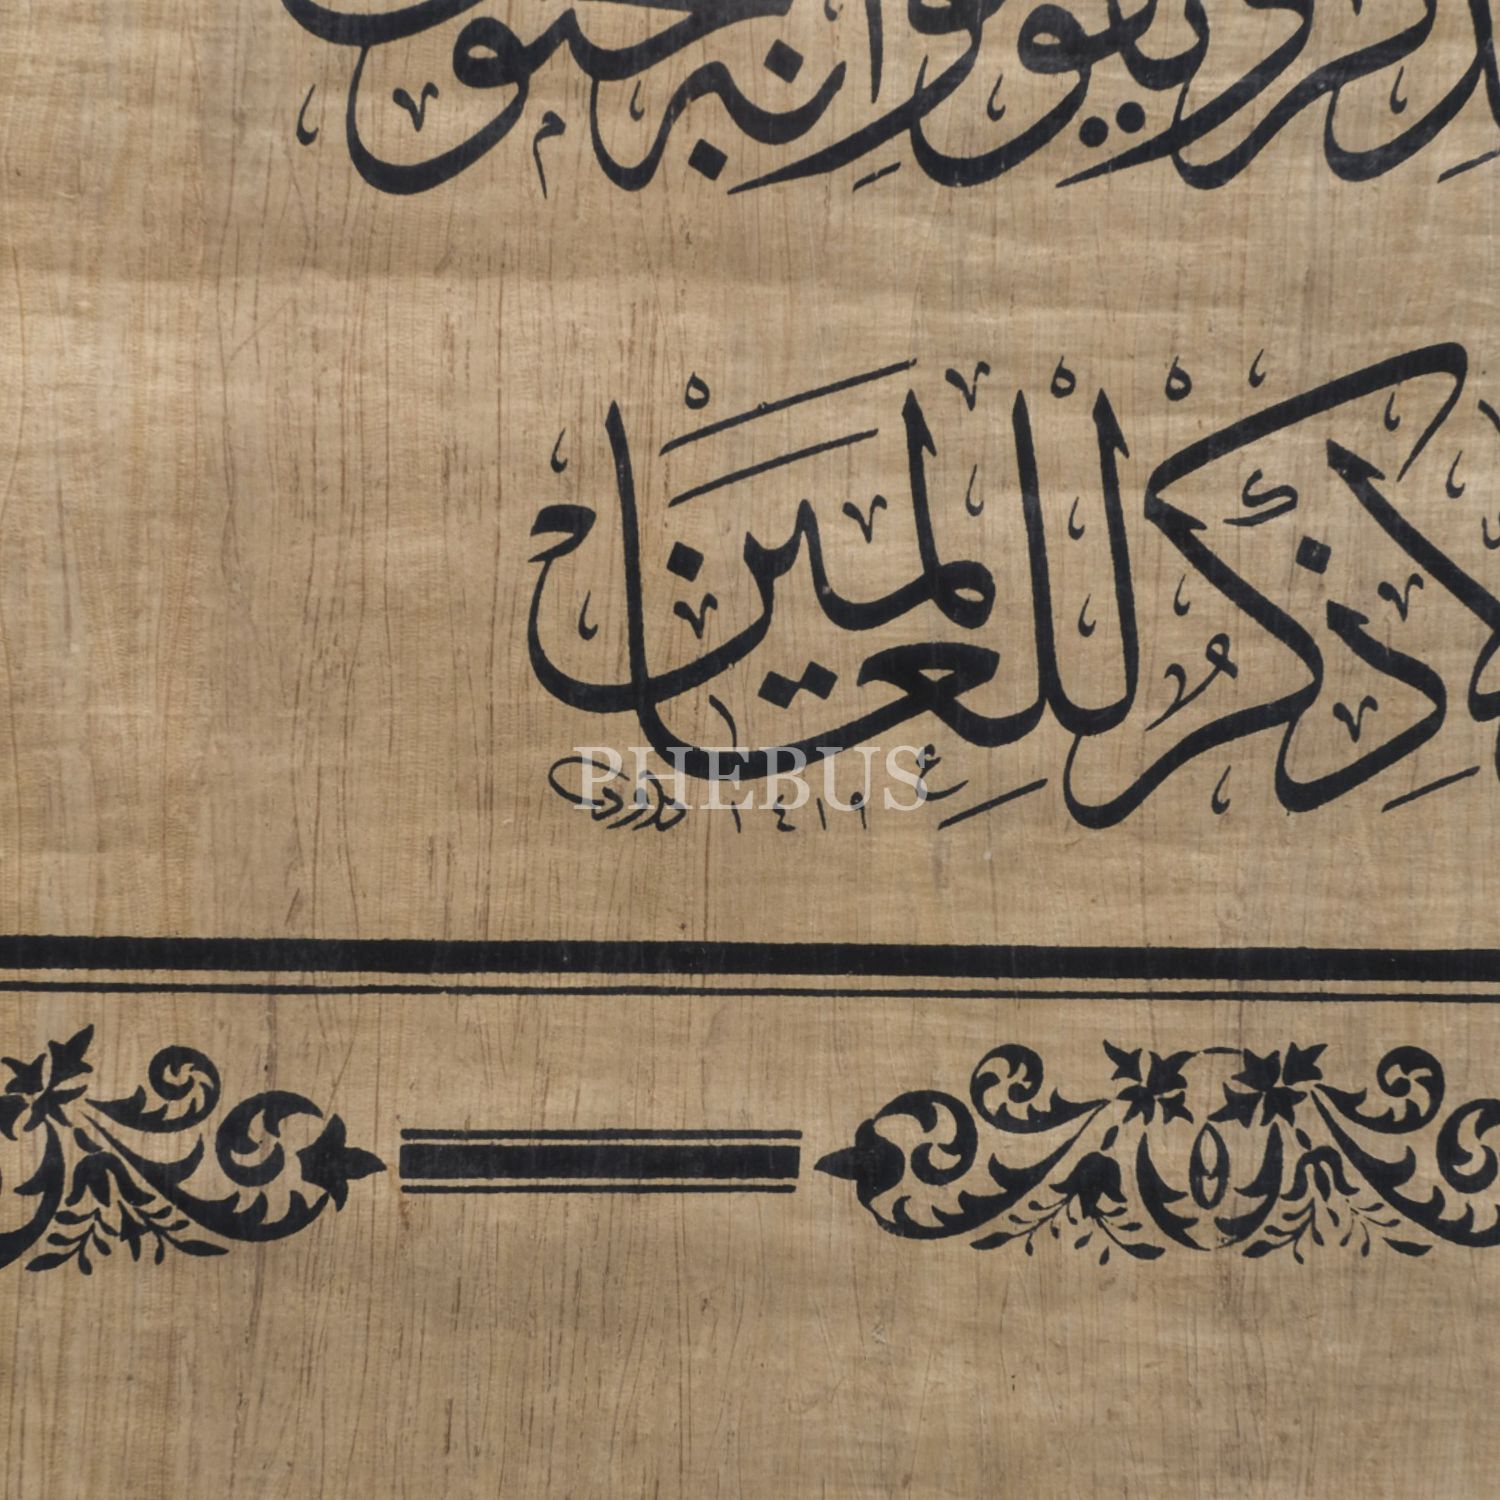 الذكر ويقولون إنه لمجنون
إلا ذكر للعالمين
١٤١٩
PHEBUS